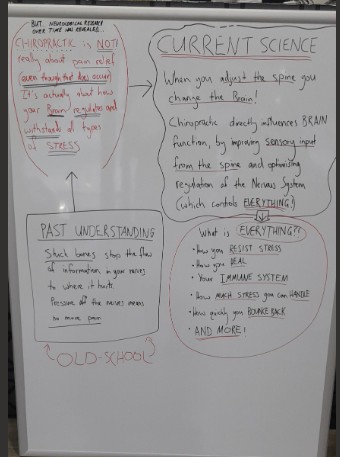 BUT... NEUROLOGICAL RESEARCH
OVER TIME HAS REVEALED...
CHIROPRACTIC is NOT
really about pain relief
(even though that does occur)
It's actually about how
your Brain regulates and
withstands all types
of STRESS
CURRENT SCIENCE
When you adjust the spine you
change the Brain!
Chiropractic directly influences BRAIN
function, by improving sensory input
from the spine and optimising
regulation of the Nervous System
(which controls EVERYTHING!)
PAST UNDERSTANDING
Stuck bones stops the flow
of information in your nerves
to where it hurts.
Pressure off the nerves means
no more pain
OLD-SCHOOL
What is EVERYTHING??
• How you RESIST STRESS
• How you HEAL
• Your IMMUNE SYSTEM
• How MUCH STRESS you can HANDLE
• How quickly you BOUNCE BACK
• AND MORE!